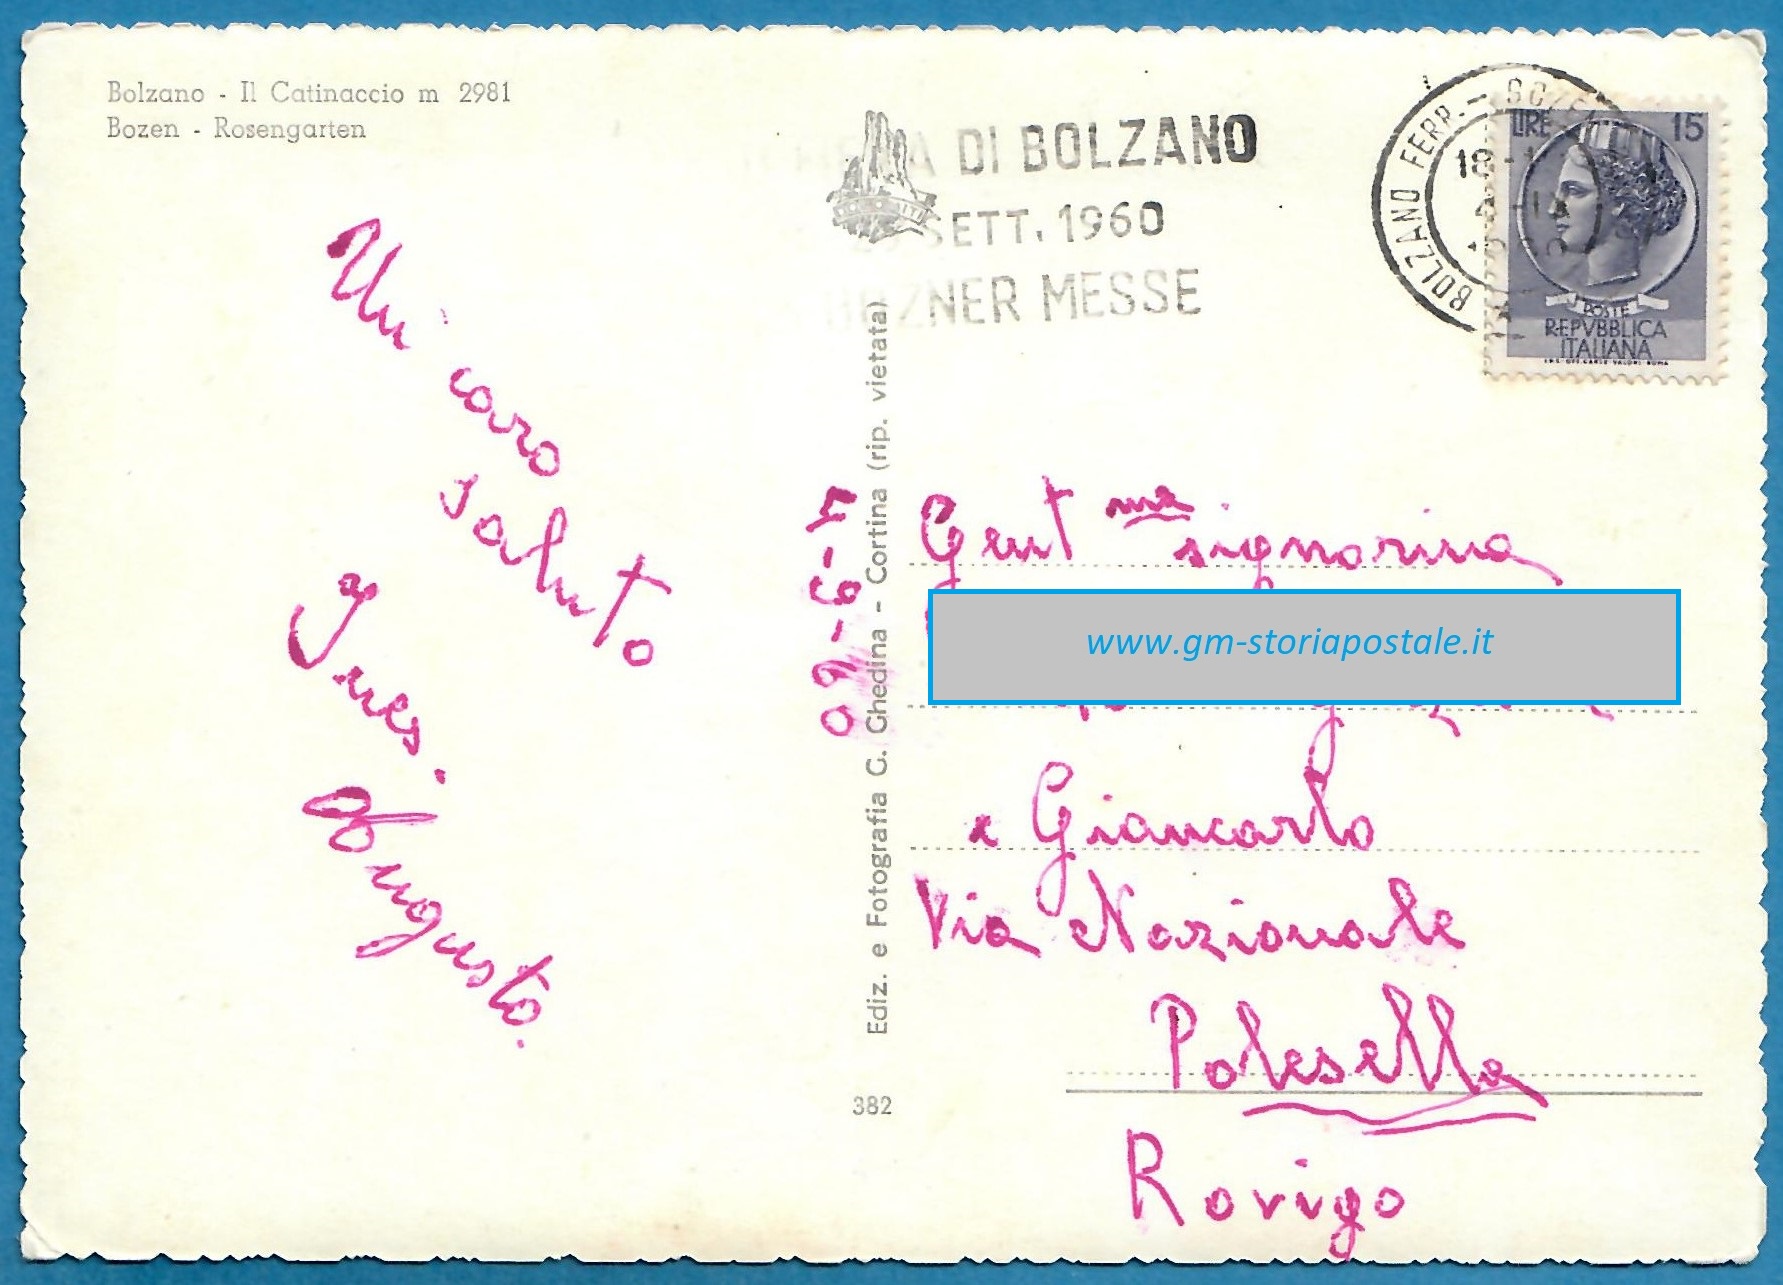 Bolzano - Il Catinaccio m 2981
Bozen - Rosengarten
DI BOLZANO
SETT. 1960
MESSE
BOLZANO FERR. -
LIRE 15
POSTE
REPVBBLICA
ITALIANA
I.P.S. OFF. CARTE VALORI ROMA
Un caro
saluto
Ines.
Augusto.
5-9-60
Ediz. e Fotografia G. Ghedina - Cortina (rip. vietata)
382
Gent ma signorina
www.gm-storiapostale.it
e Giancarlo
Via Nazionale
Polesella
Rovigo